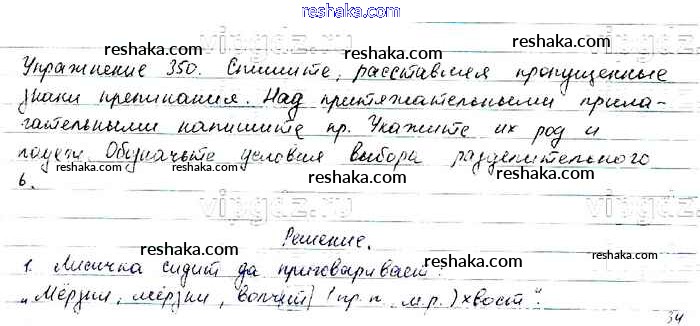 reshaka.com
reshaka.com reshaka.com reshaka.com
Упражнение 350. Спишите, расставляя пропущенные
знаки препинания. Над притяжательными прила-
reshaka.com reshaka.com reshaka.com
гательными напишите пр. Укажите их род и
падеж. Обозначьте условия выбора разделительного
reshaka.com reshaka.com reshaka.com
ь.
vipgdz.ru vipgdz.ru
Решение.
reshaka.com reshaka.com reshaka.com
1. Лисичка сидит да приговаривает:
„Мёрзни, мёрзни, волчий (пр. п. м.р.) хвост".
reshaka.com reshaka.com
54